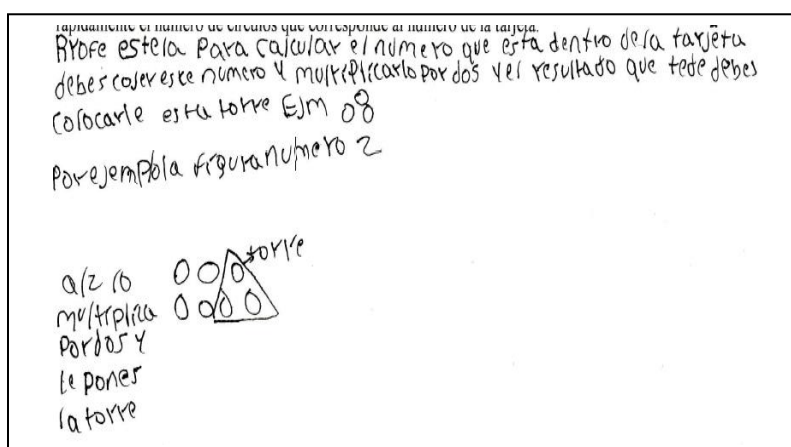 rápidamente el número de círculos que corresponde al número de la tarjeta.
Profe estela Para calcular el número que esta dentro dela tarjeta
debes cojer este numero y multiplicarlo por dos y el resultado que tede debes
colocarle esta torre EJM
Por ejemplola figura numero 2
torre
al 2 lo
multiplica
Por dos y
le pones
la torre